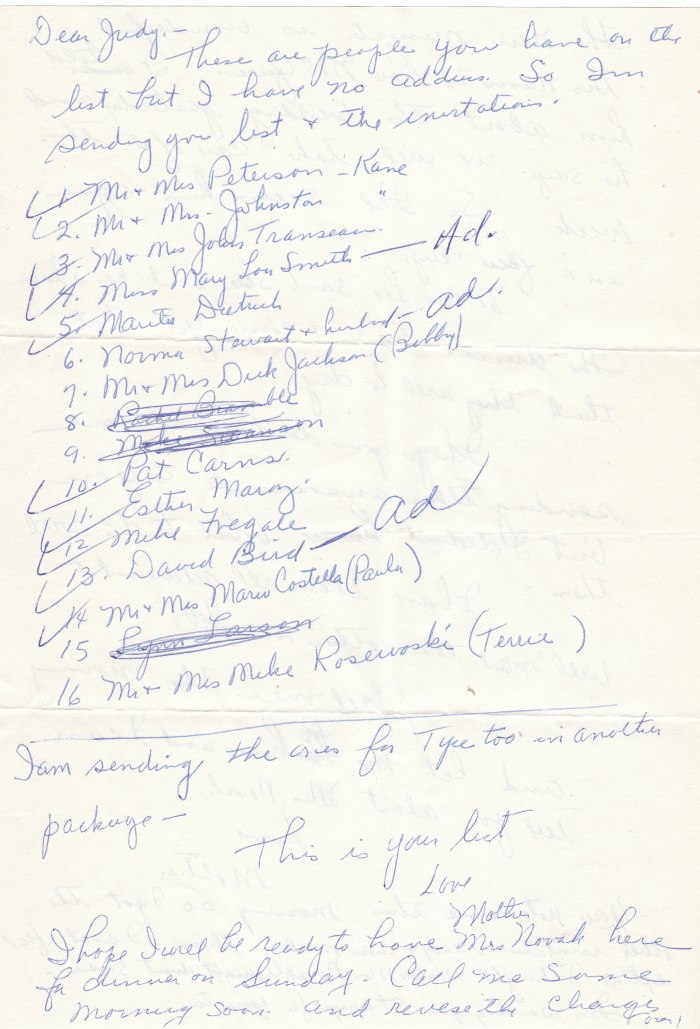 Dear Judy, -
These are people you have on the
list but I have no address. So Im
sending you list & the invitations.
1. Mr & Mrs Peterson - Kane
2. Mr & Mrs - Johnston "
3. Mr & Mrs John Transeau.
4. Miss Mary Lou Smith — Ad.
5. Marite Dietrich
6. Norma Stewart & husband - ad.
7. Mr & Mrs Dick Jackson (Bobby)
8. Rachel Bramble
9. Mike Swanson
10. Pat Carns.
11. Esther Maroz.
12 Mike Fregale
13. David Bird — ad
14 Mr & Mrs Mario Costella (Paula)
15 Lynn Larson
16 Mr & Mrs Mike Rosewoski (Terrie)
I am sending the ones for Tyce too in another
package —
This is your list
Love
Mother
I hope I will be ready to have Mrs Novak here
for dinner on Sunday. Call me some
morning soon. and revese the charges
over!